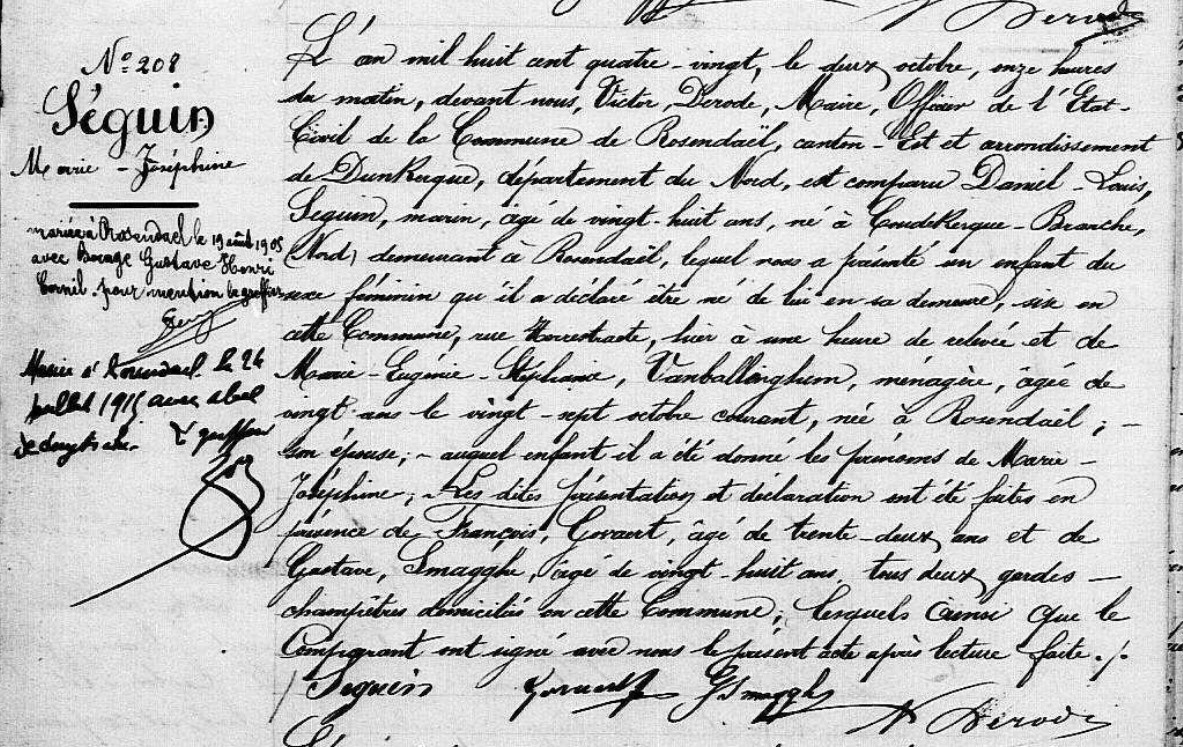 Derode
Nº 208
Séguin
Marie - Joséphine
mariée à Rosendael le 19 août 1905
avec Bocage Gustave Henri
Cornil. pour mention le greffier
Mariée à Rosendael le 24
juillet 1915 avec Abel
Le greffier
L'an mil huit cent quatre-vingt, le deux octobre, onze heures
du matin, devant nous, Victor, Derode, Maire, Officier de l'État-
Civil de la Commune de Rosendaël, canton-Est et arrondissement
de Dunkerque, département du Nord, est comparu Daniel-Louis,
Seguin, marin, âgé de vingt-huit ans, né à Coudekerque-Branche,
(Nord) demeurant à Rosendaël, lequel nous a présenté un enfant du
sexe féminin qu'il a déclaré être né de lui en sa demeure, sise en
cette Commune, rue hier à une heure de relevée et de
Marie-Eugénie-Stéphanie, Vanballinghem, ménagère, âgée de
vingt ans le vingt-sept octobre courant, née à Rosendaël; -
son épouse; - auquel enfant il a été donné les prénoms de Marie-
Joséphine; - Les dites présentation et déclaration ont été faites en
présence de François, Govaert, âgé de trente-deux ans et de
Gustave, Smagghe, âgé de vingt-huit ans, tous deux gardes-
champêtres domiciliés en cette Commune; lesquels ainsi que le
Comparant ont signé avec nous le présent acte après lecture faite. /.
Seguin Govaert G Smagghe
V Derode